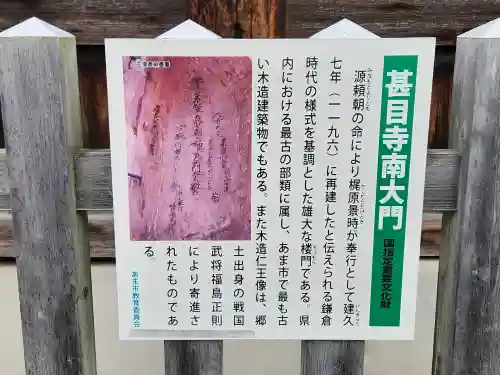 甚目寺南大門
国指定重要文化財
源頼朝の命により梶原景時が奉行として建久
七年（一一九六）に再建したと伝えられる鎌倉
時代の様式を基調とした雄大な楼門である。県
内における最古の部類に属し、あま市で最も古
い木造建築物でもある。また木造仁王像は、郷
土出身の戦国
武将福島正則
により寄進さ
れたものであ
る。
あま市教育委員会